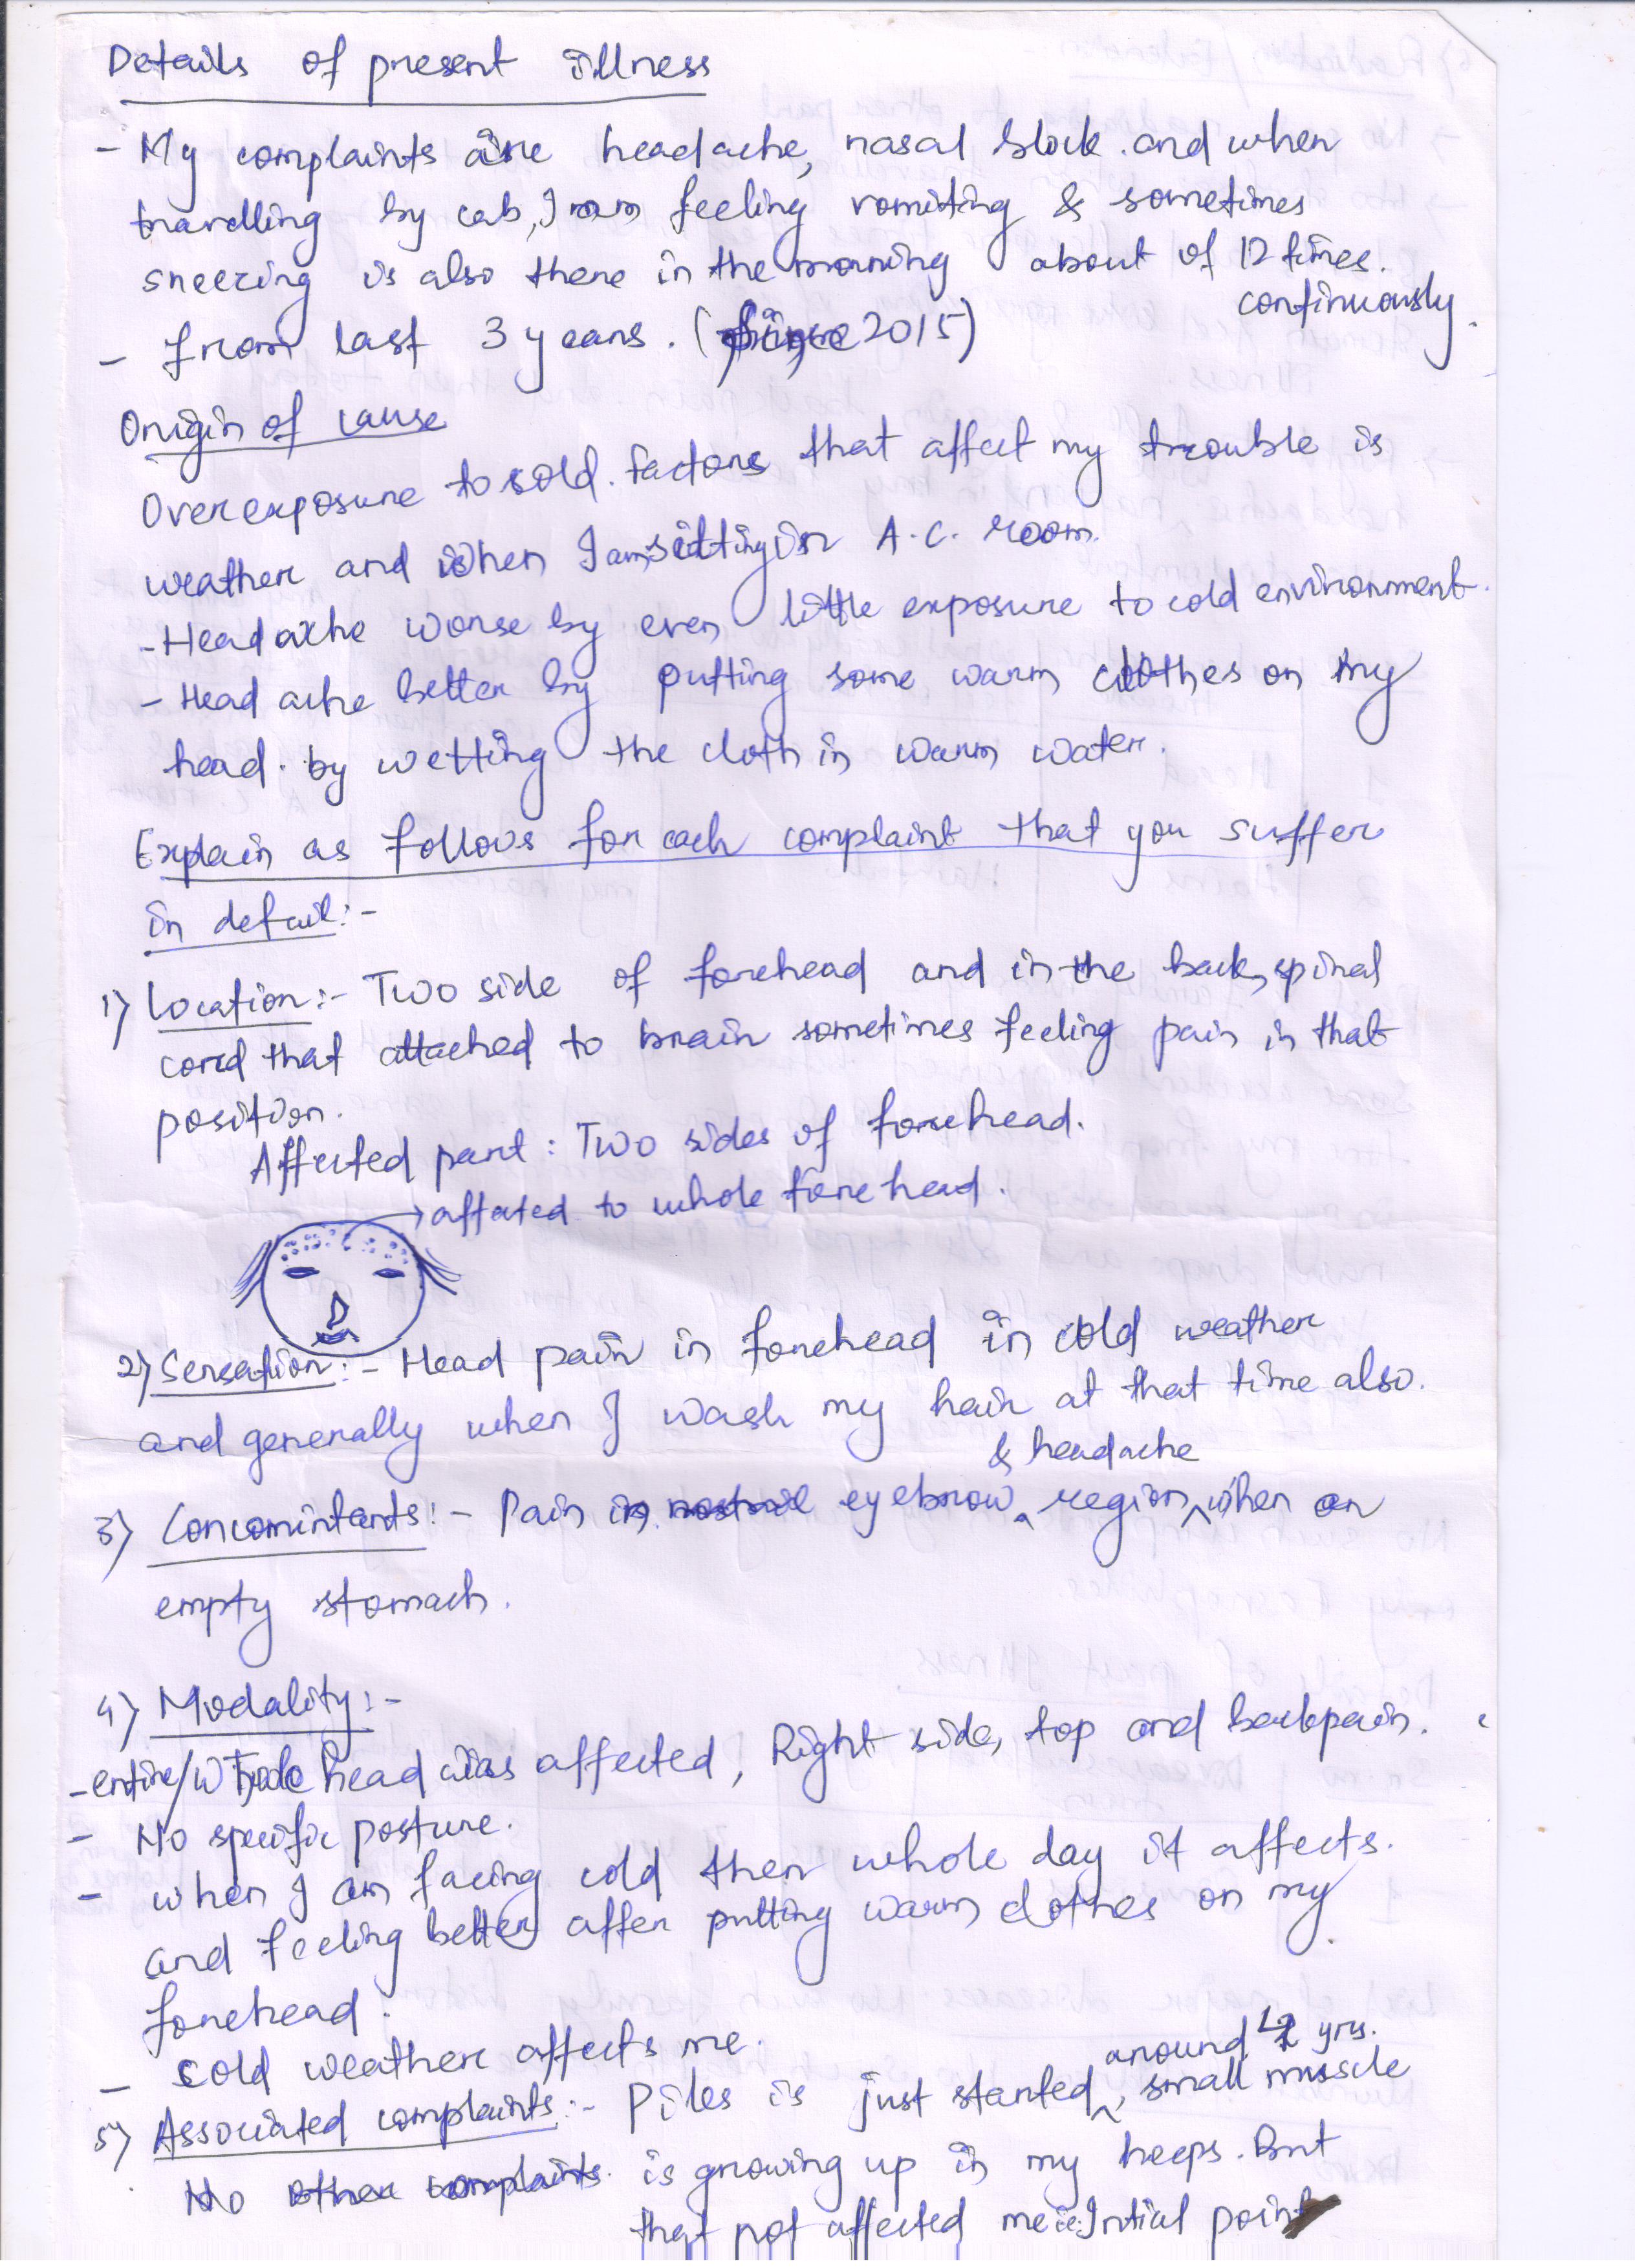 Details of present illness
- My complaints are headache, nasal block and when
travelling by cab, I am feeling vomiting & sometimes
sneezing is also there in the morning about of 12 times.
continuously.
- from last 3 years. (since 2015)
Origin of cause
Over exposure to cold. factors that affect my trouble is
weather and when I am sitting in A.C. room.
- Headache worse by even little exposure to cold environment.
- Head ache better by putting some warm clothes on my
head. by wetting the cloth in warm water.
Explain as follows for each complaint that you suffer
in detail:-
1) Location:- Two side of forehead and in the back, spinal
cord that attached to brain sometimes feeling pain in that
position.
Affected part: Two sides of forehead.
affated to whole forehead.
2) Sensation:- Head pain in forehead in cold weather
and generally when I wash my hair at that time also.
& headache
3) Concomintants:- Pain in eyebrow region, when on
empty stomach.
4) Modality:-
- entire/Whole head was affected, Right side, top and backpain.
- No specific posture.
- when I am facing cold then whole day it affects.
and feeling better after putting warm clothes on my
forehead.
- cold weather affects me.
around yrs.
5) Associated complaints:- Piles is just started, small muscle
No other complaints. is growing up in my heeps. But
that not affected me i.e. Intial point